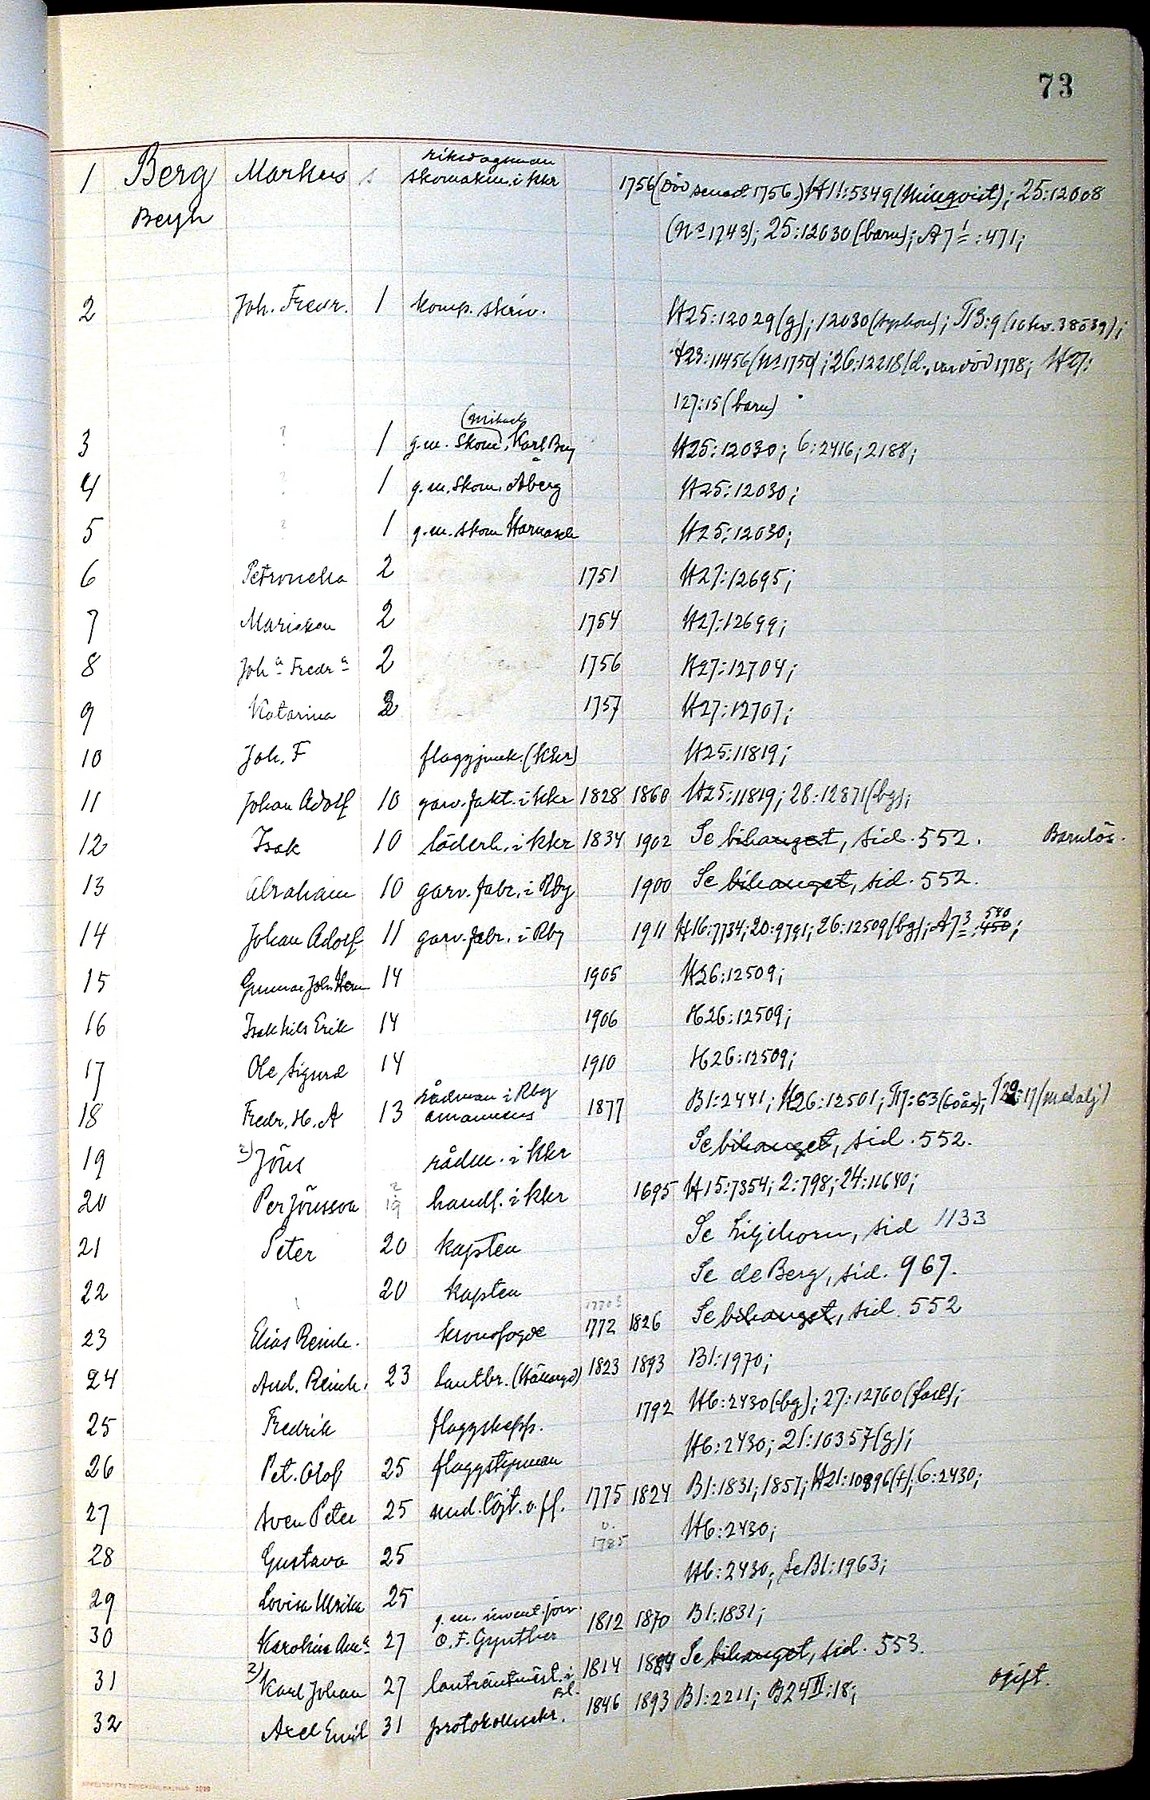 73
riksdagsman
1 Berg Markus skomakm. i kkr 1756 (död senast 1756) H11:5349 ; 25:12008
Bergh (No 1743); 25:12030 (barn); A7 1 :471;
2 Joh. Fredr. 1 komp. skriv. H25:12029 (g); 12030 ; 
H23:11456 (No 1759; 26:12218 död 1778; H27:
127:15 (barn)
3 ? 1 g.m. Skom. Karl Berg H25:12030; 6:2416; 2188;
4 ? 1 g.m. Skom. Åberg H25:12030;
5 ? 1 g.m. skom H25:12030;
6 Petronella 2 1751 H27:12695;
7 Marieken 2 1754 H27:12699;
8 Joha Fredra 2 1756 H27:12704;
9 Katarina 2 1757 H27:12707;
10 Joh. F flaggjunk. (kkr) H25:11819;
11 Johan Adolf 10 garv. fakt. i kkr 1828 1860 H25:11819; 28:12871 (bg);
12 Isak 10 läderh. i kkr 1834 1902 Se bihanget, sid. 552. Barnlös.
13 Abraham 10 garv. fabr. i Rby 1900 Se bihanget, sid. 552.
14 Johan Adolf 11 garv. fabr. i Rby 1911 H16:7734; 20:9791; 26:12509 (bg); A7 3 :450 540;
15 Gunnar Joh. Herm 14 1905 H26:12509;
16 Isak Nils Erik 14 1906 H26:12509;
17 Ole Sigurd 14 1910 H26:12509;
rådman i Rby
18 Fredr. H. A 13 amanuens 1877 B1:2441; H26:12501; T17:63 (60 år); :17 (medalj)
19 2) Jöns rådm. i kkr Se bihanget, sid. 552.
20 Per Jönsson ? 19 handl. i kkr 1695 H15:7354; 2:798; 24:11640;
21 Peter 20 kapten Se Liljehorn, sid 1133
22 20 kapten Se de Berg, sid. 967.
23 Elias Reinh. kronofogde 1772 1826 Se bihanget, sid. 552
24 And. Reinh. 23 lantbr. 1823 1893 B1:1970;
25 Fredrik flaggskepp. 1792 H6:2430 (bg); 27:12760 ;
26 Pet. Olof 25 flaggstyrman H6:2430; 21:10357 (g);
27 Sven Peter 25 und. löjt. o. ff. 1775 1824 B1:1831, 1857; H21:10896 (t); 6:2430;
28 Gustava 25 o. 1785 H6:2430;
29 Lovisa Ulrika 25 H6:2430; Se B1:1963;
g.m. invent. förv.
30 Karolina Ana 27 O. F. Gynther 1812 1870 B1:1831;
31 3) Karl Johan 27 lanträntmäst. i Bl. 1814 1884 Se bihanget, sid. 553.
32 Axel Emil 31 protokollsekr. 1846 1893 B1:2211; B24 II:18; ogift.